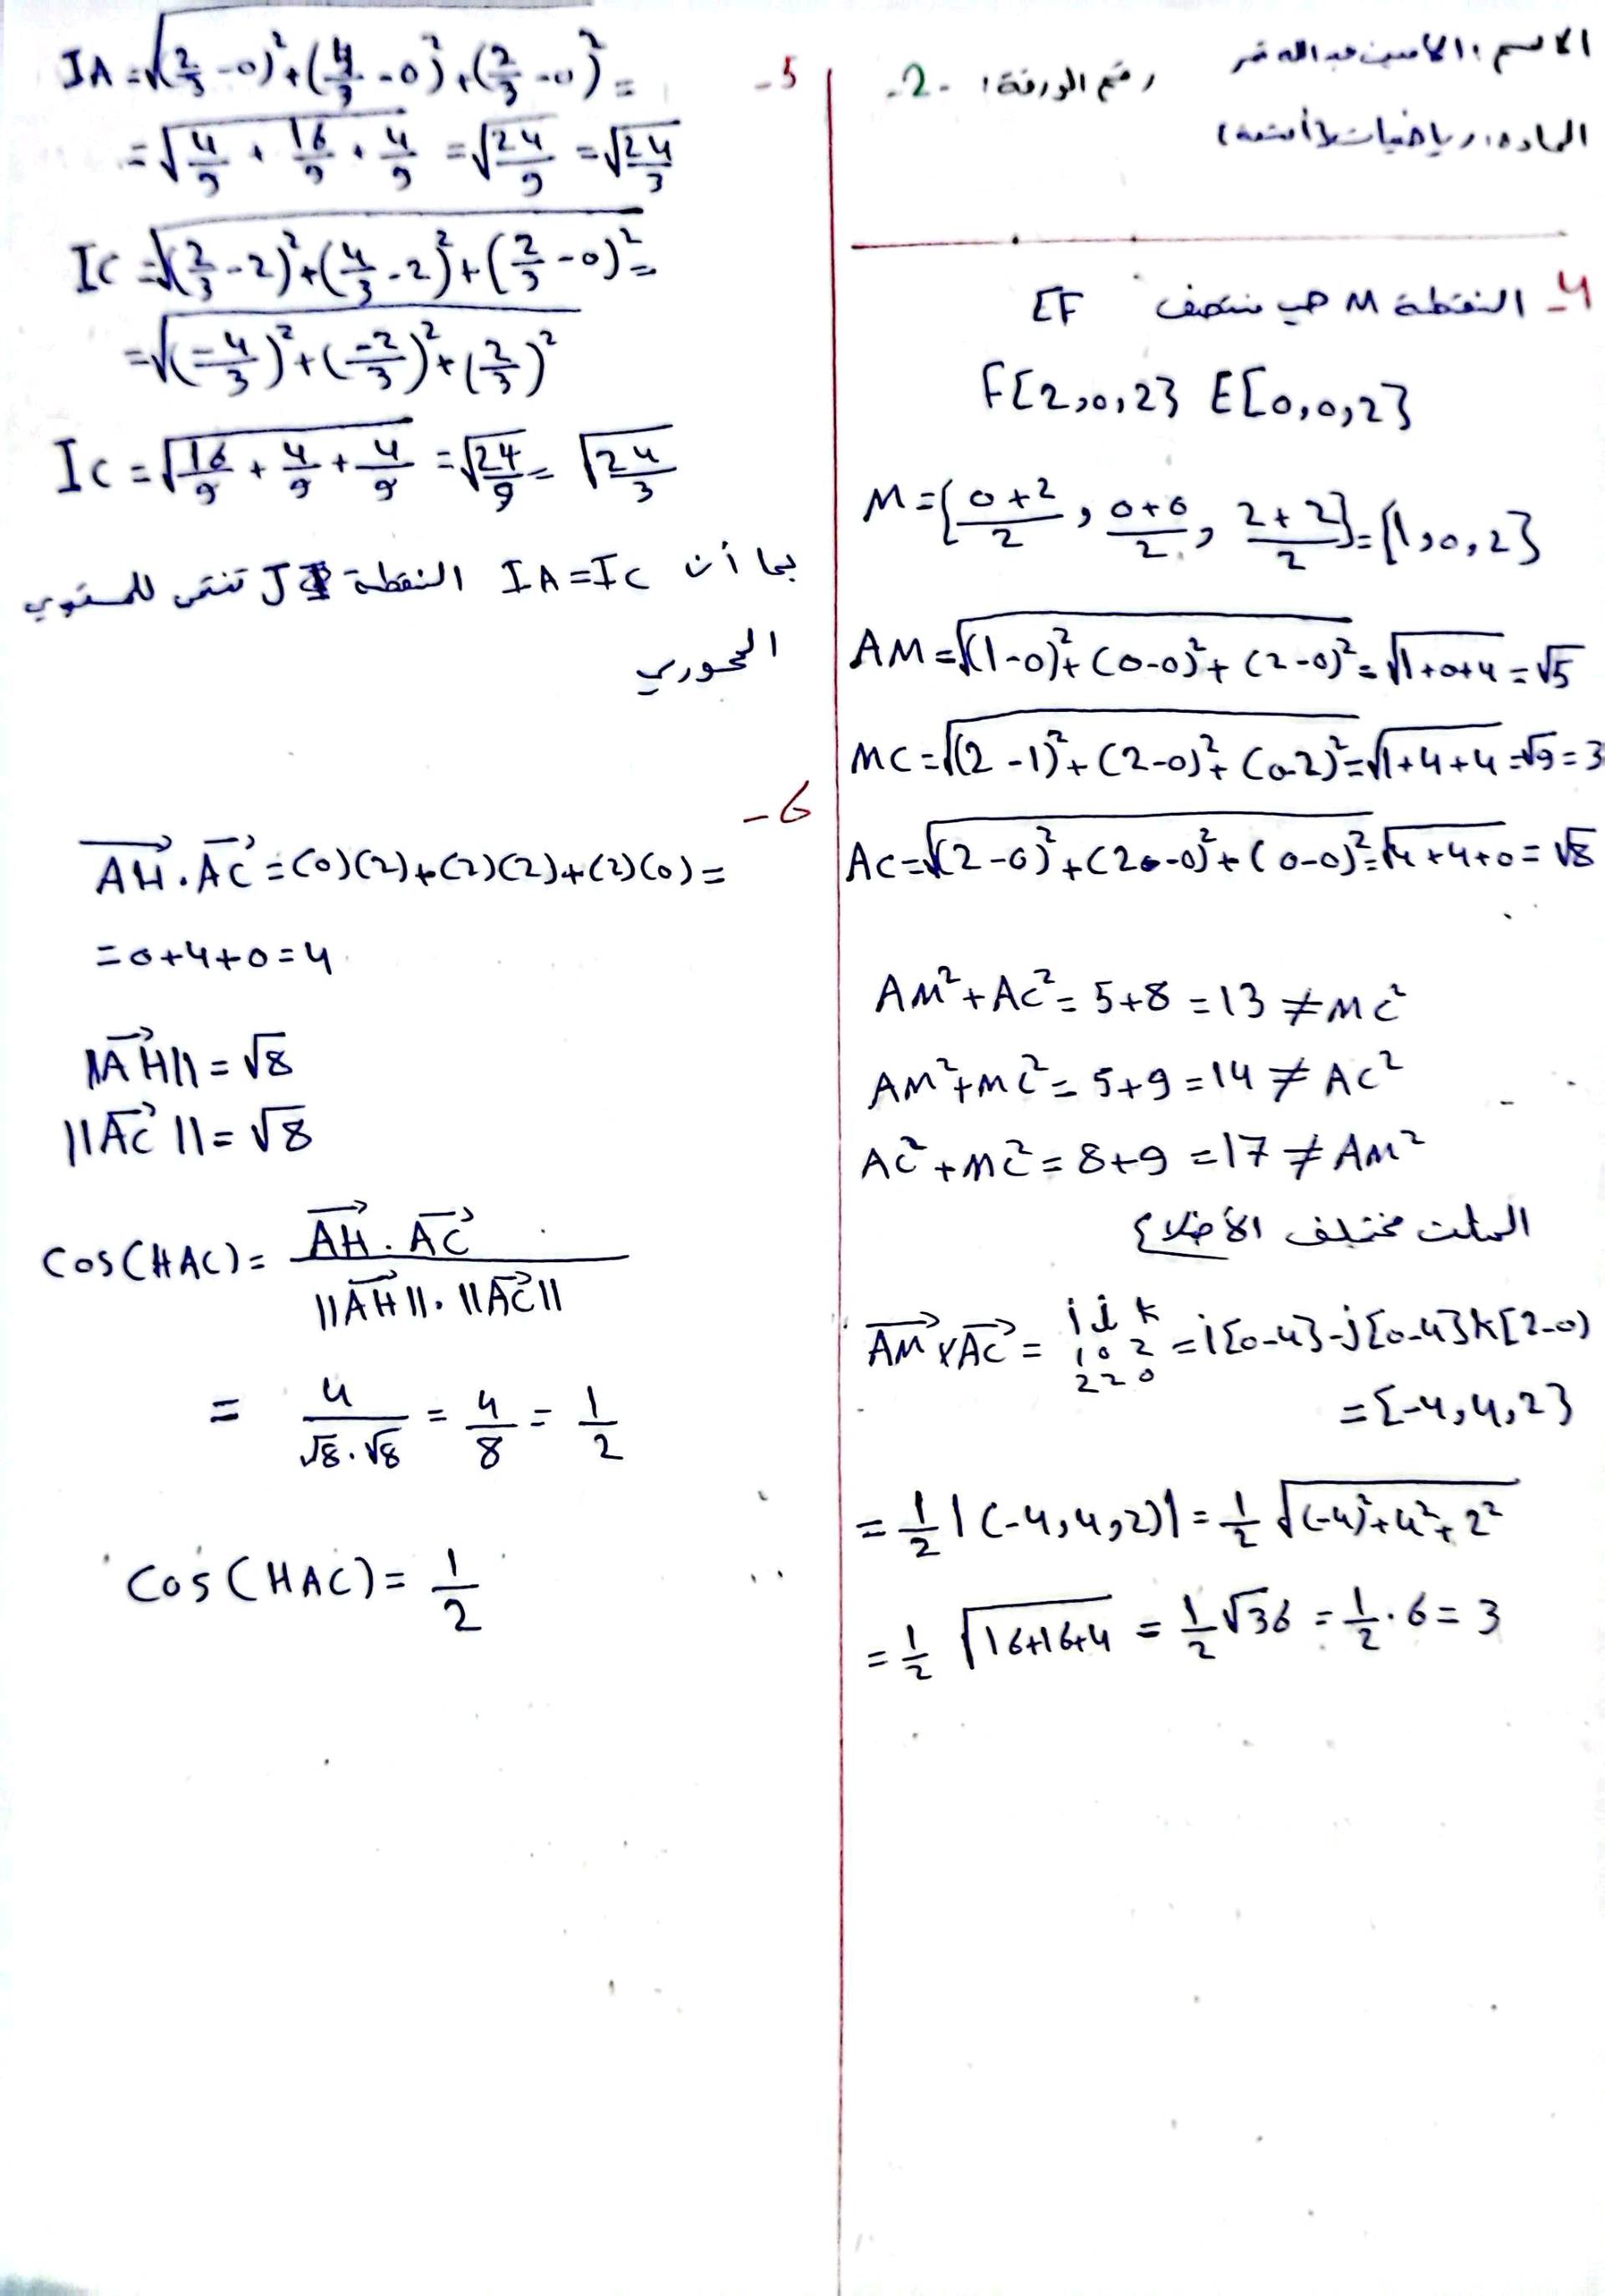 الاسم: الامين عبدالله قمر
رقم الورقة: -2-
المادة: رياضيات (أتمتة)
4- النقطة M هي منتصف EF
F[2,0,2} E[0,0,2}
M={0+2/2, 0+0/2, 2+2/2}={1,0,2}
AM=√(1-0)²+(0-0)²+(2-0)²=√1+0+4=√5
MC=√(2-1)²+(2-0)²+(0-2)²=√1+4+4=√9=3
AC=√(2-0)²+(2-0)²+(0-0)²=√4+4+0=√8
AM²+AC²=5+8=13≠MC²
AM²+MC²=5+9=14≠AC²
AC²+MC²=8+9=17≠AM²
المثلث مختلف الأضلاع
AM×AC= i j k
1 0 2
2 2 0
=i[0-4}-j[0-4}k[2-0)
={-4,4,2}
=1/2|(-4,4,2)|=1/2√(-4)²+4²+2²
=1/2√16+16+4=1/2√36=1/2·6=3
5-
IA=√(2/3-0)²+(4/3-0)²+(2/3-0)²=
=√4/9+16/9+4/9=√24/9=√24/3
IC=√(2/3-2)²+(4/3-2)²+(2/3-0)²=
=√(-4/3)²+(-2/3)²+(2/3)²
IC=√16/9+4/9+4/9=√24/9=√24/3
بما أن IA=IC النقطة J تنتمي للمستوي
المحوري
6-
AH.AC=(0)(2)+(2)(2)+(2)(0)=
=0+4+0=4
||AH||=√8
||AC||=√8
Cos(HAC)=AH.AC/||AH||.||AC||
=4/√8.√8=4/8=1/2
Cos(HAC)=1/2